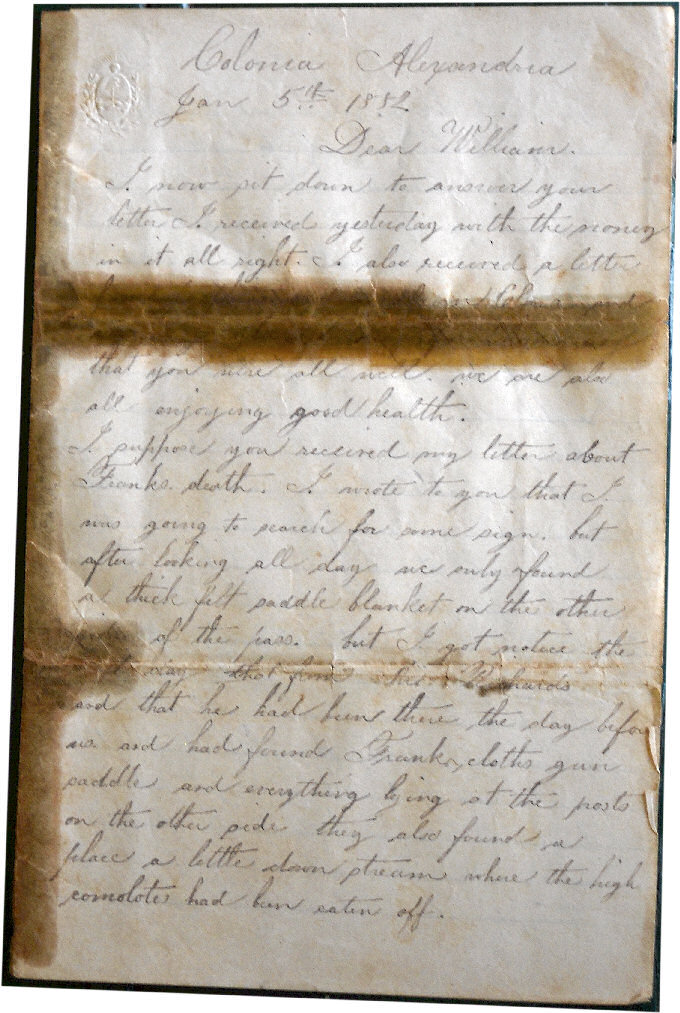 Colonia Alexandria
Jan 5th 1882
Dear William.
I now sit down to answer your
letter I received yesterday with the money
in it all right. I also received a letter
that you were all well. we are also
all enjoying good health.
I suppose you received my letter about
Franks death. I wrote to you that I
was going to search for some sign. but
after looking all day we only found
a thick felt saddle blanket on the other
of the pass. but I got notice the
day that
and that he had been there the day before
us and had found Franks cloths gun
saddle and everything lying at the posts
on the other side they also found a
place a little down stream where the high
comolotes had ben eaten off.